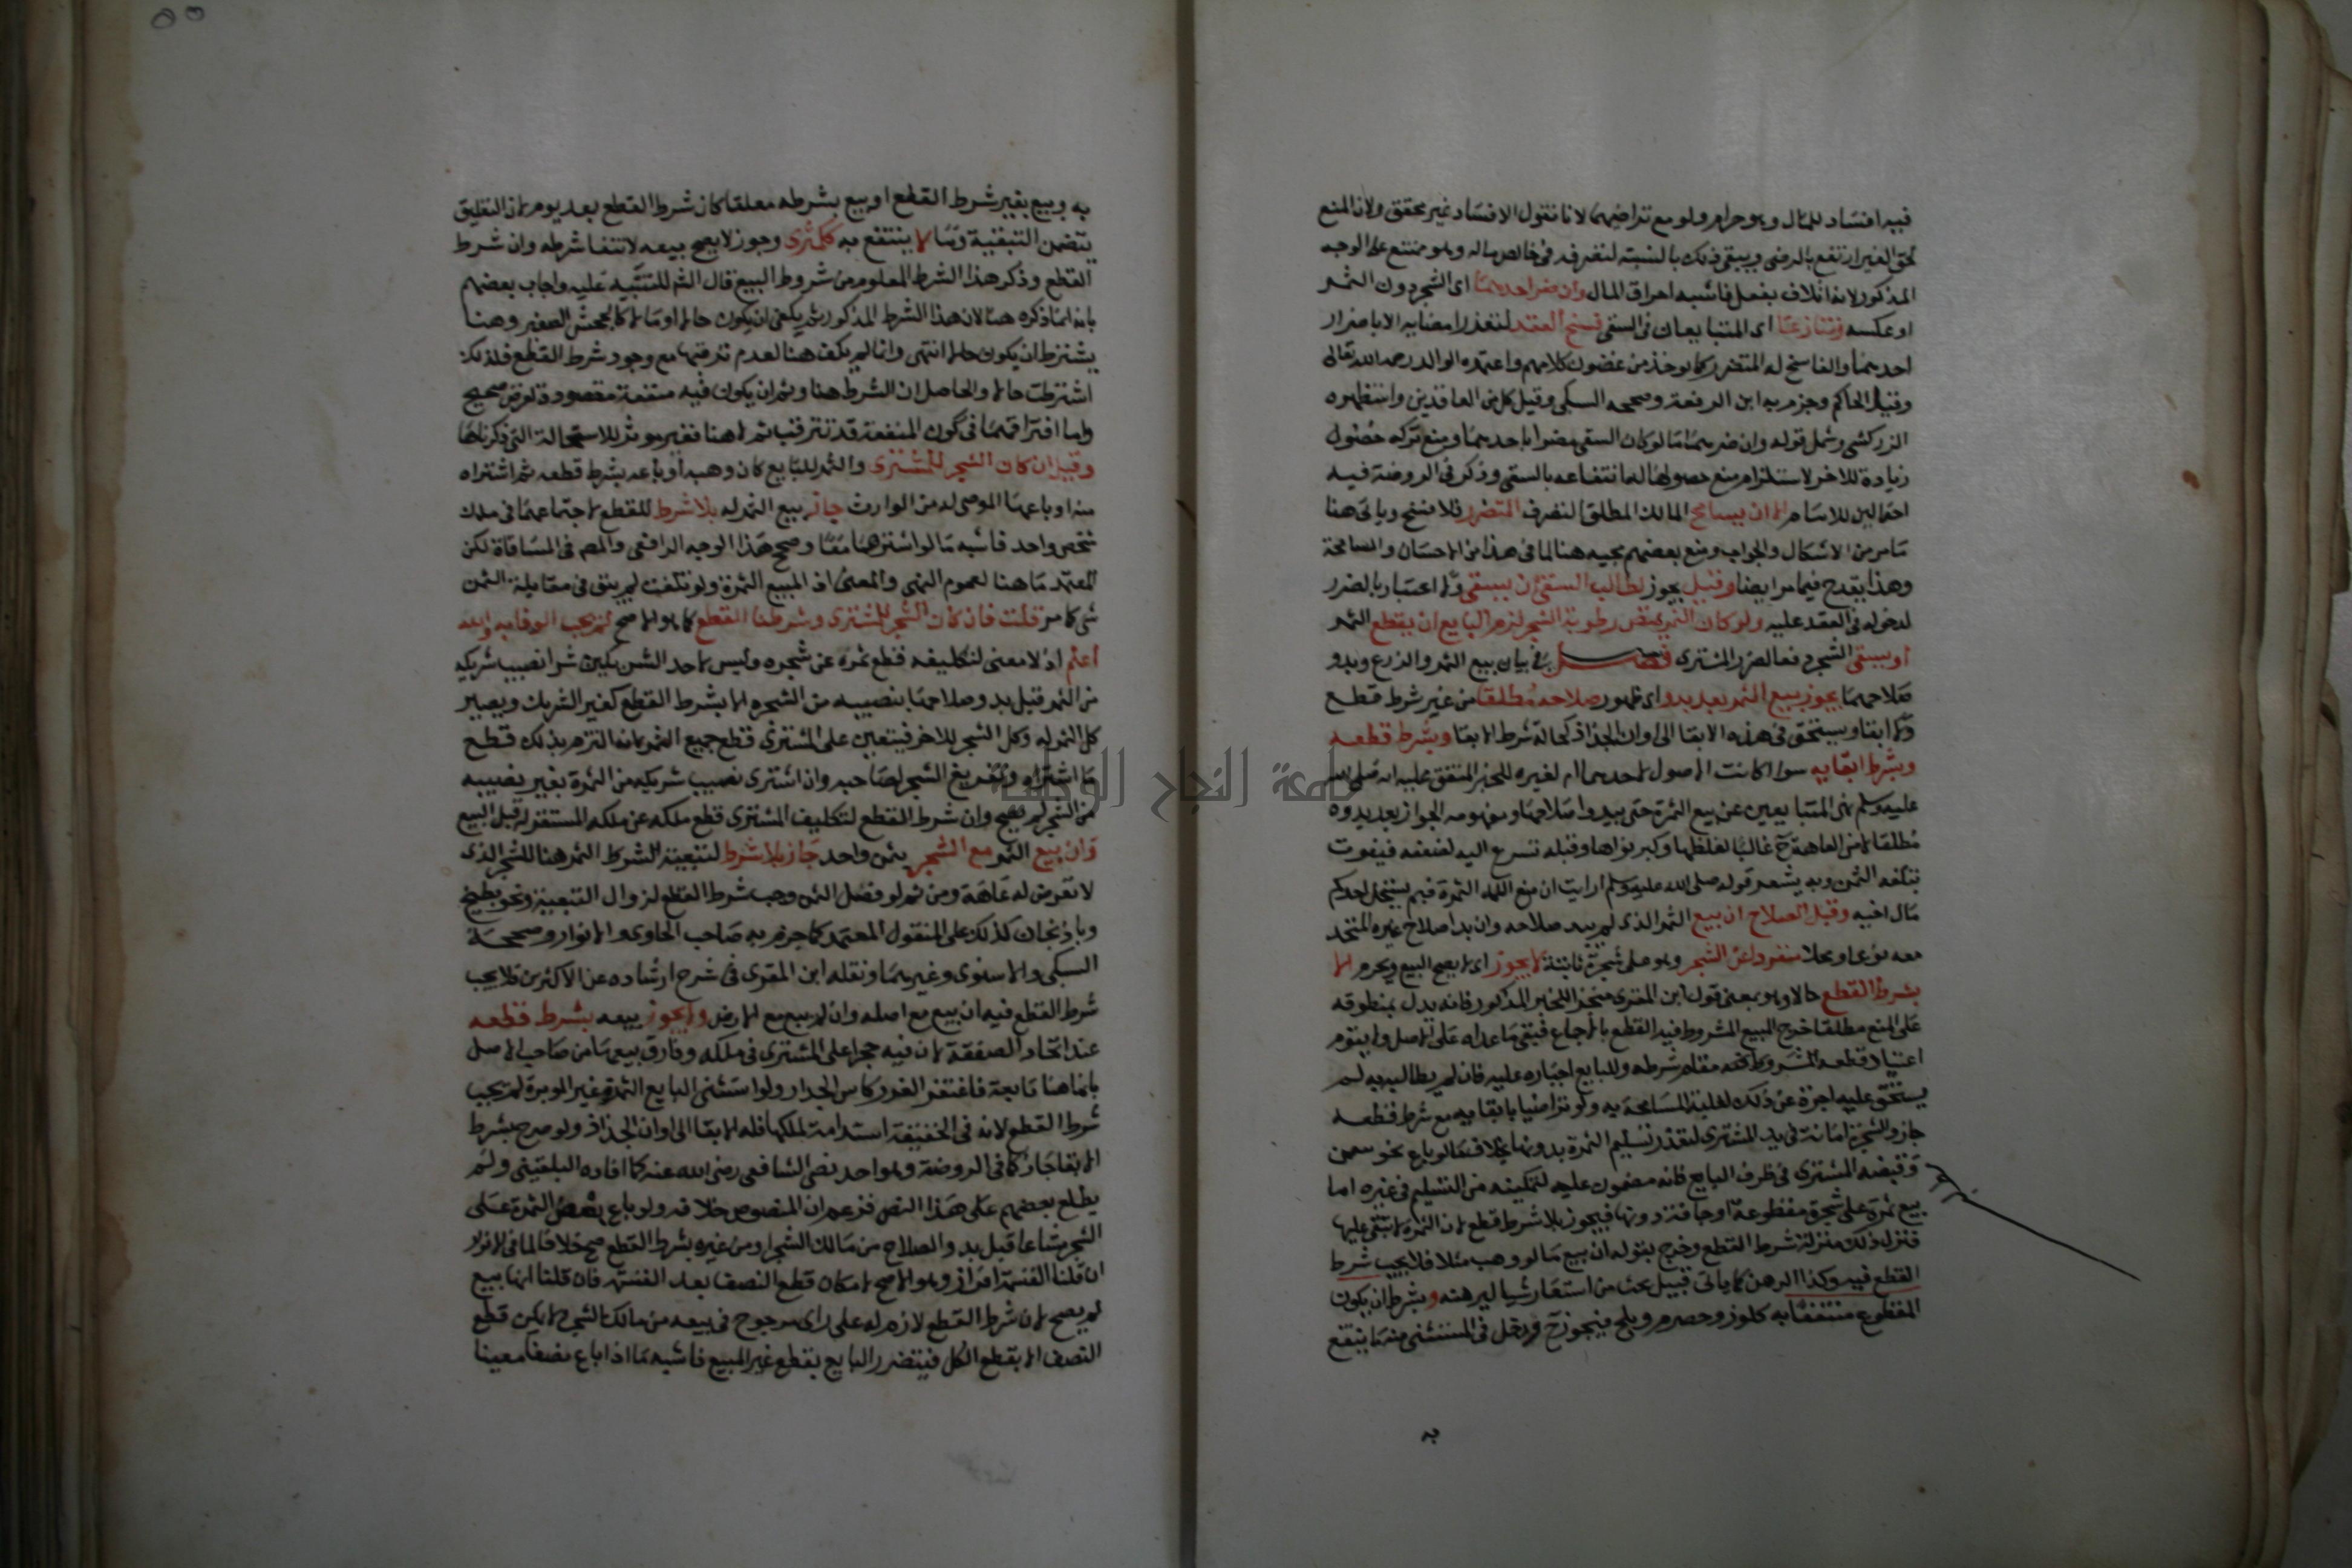 فيه افساد للمال وهو حرام ولو مع تراضيهما لانا نقول الافساد غير محقق ولان المنع
لحق الغير ارتفع بالرضى ويبقى ذلك بالنسبة لتصرفه فى خالص ماله وهو ممتنع على الوجه
المذكور لانه اتلاف بفعل فاشبه احراق المال وان ضر احدهما اى الشجر دون الثمر
او عكسه وتنازعا اى المتبايعان فى السقى فسخ العقد لتعذر امضايه الا باضرار
احدهما والفاسخ له المتضرر كما يوخذ من غضون كلامهم واعتمده الوالد رحمه الله تعالى
وقيل الحاكم وجزم به ابن الرفعة وصححه السبكى وقيل كل من العاقدين واستظهره
الزركشى وشمل قوله وان ضر احدهما ما لو كان السقى مضرا باحدهما ومنع تركه حصول
زيادة للاخر لاستلزام منع حصولها له انتفاعه بالسقى وذكر فى الروضة فيه
احتمالين للامام الا ان يسامح المالك المطلق التصرف المتضرر فلا فسخ وياتى هنا
مامر من الاشكال والجواب ومنع بعضهم مجيه هنا لما فى هذا من الاحسان والمسامحة
وهذا يقدح فيما مر ايضا وقيل يجوز لطالب السقى ان يسقى ولا اعتبار بالضرر
لدخوله فى العقد عليه ولو كان الثمر يمتص رطوبة الشجر لزم البايع ان يقطع الثمر
او يسقى الشجر دفعا لضرر المشترى فصل فى بيان بيع الثمر والزرع وبدو
صلاحهما يجوز بيع الثمر بعد بدو اى ظهور صلاحه مطلقا من غير شرط قطع
ولا ابقا ويستحق فى هذه الابقا الى اوان الجذاذ كحالة شرط الابقا وبشرط قطعه
وبشرط ابقايه سوا كانت الاصول لاحدهما ام لغيره للخبر المتفق عليه انه صلى الله
عليه وسلم نهى المتبايعين عن بيع الثمرة حتى يبدو صلاحها ومفهومه الجواز بعد بدوه
مطلقا لامن العاهة ح غالبا لغلظها وكبر نواها وقبله تسرع اليه لضعفه فيفوت
بتلفه الثمن وبه يشعر قوله صلى الله عليه وسلم ارايت ان منع الله الثمرة فبم يستحل احدكم
مال اخيه وقبل الصلاح ان بيع الثمر الذى لم يبد صلاحه وان بدا صلاح غيره المتحد
معه نوعا ومحلا منفردا عن الشجر وهو على شجرة ثابتة لا يجوز اى لا يصح البيع ويحرم الا
بشرط القطع حالا وهو بمعنى قول ابن المقرى منجزا للخبر المذكور فانه يدل بمنطوقه
على المنع مطلقا خرج المبيع المشروط فيه القطع بالاجماع فبقى ما عداه على الاصل ولا يقوم
اعتياد قطعه المشروط كقطعه مقام شرطه وللبايع اجباره عليه فان لم يطالبه به لم
يستحق عليه اجرة عن ذلك لغلبة المسامحة به ولو تراضيا بابقايه مع شرط قطعه
جاز والشجرة امانة فى يد المشترى لتعذر تسليم الثمرة بدونها بخلاف ما لو باع نحو سمن
وقبضه المشترى فى ظرف البايع فانه مضمون عليه لتمكينه من التسليم فى غيره اما
بيع ثمرة على شجرة مقطوعة او جافة بدونها فيجوز بلا شرط قطع لان الثمرة لا تبقى عليها
فنزل ذلك منزلة شرط القطع وخرج بقوله ان بيع ما لو وهب مثلا فلا يجب شرط
القطع فيه وكذا الرهن كما ياتى قبيل بحث من استعار شيا ليرهنه وبشرط ان يكون
المقطوع منتفعا به كلوز وحصرم وبلح فيجوز ح ودخل فى المستثنى منه ما ينتفع
به
به وبيع بغير شرط القطع او بيع بشرطه معلقا كان شرط القطع بعد يوم لان التعليق
يتضمن التبقية وما لا ينتفع به ككمثرى وجوز لا يصح بيعه لانتفا شرطه وان شرط
القطع وذكر هذا الشرط المعلوم من شروط البيع قال الش للتنبيه عليه واجاب بعضهم
بانه انما ذكره هنا لان هذا الشرط المذكور ثم يكفى ان يكون حالا او مالا كالجحش الصغير وهنا
يشترط ان يكون حالا انتهى وانما لم يكف هنا لعدم ترقبها مع وجود شرط القطع فلذلك
اشترطت حالا والحاصل ان الشرط هنا وثم ان يكون فيه منفعة مقصودة لغرض صحيح
واما افتراقهما فى كون المنفعة قد تترقب ثم لا هنا فغير موثر للاستحالة التى ذكرناها
وقيل ان كان الشجر للمشترى والثمر للبايع كان وهبه او باعه بشرط قطعه ثم اشتراه
منه او باعها الموصى له من الوارث جاز بيع الثمر له بلا شرط للقطع لاجتماعهما فى ملك
شخص واحد فاشبه ما لو اشتراهما معا وصحح هذا الوجه الرافعى والمص فى المساقاة لكن
المعتمد ما هنا لعموم النهى والمعنى اذ المبيع الثمرة ولو تلفت لم يبق فى مقابلة الثمن
شى كما مر قلت فان كان الشجر للمشترى وشرطنا القطع كما هو الاصح لم يجب الوفا به والله
اعلم اذ لا معنى لتكليفه قطع ثمره عن شجره وليس لاحد الشريكين شرا نصيب شريكه
من الثمر قبل بدو صلاحها بنصيبه من الشجره الا بشرط القطع كغير الشريك ويصير
كل الثمر له وكل الشجر للاخر فيتعين على المشترى قطع جميع الثمر لانه التزم بذلك قطع
ما اشتراه وتفريغ الشجر لصاحبه وان اشترى نصيب شريكه من الثمرة بغير نصيبه
من الشجر لم يصح وان شرط القطع لتكليف المشترى قطع ملكه عن ملكه المستقر له قبل البيع
وان بيع الثمر مع الشجر بثمن واحد جاز بلا شرط لتبعية الثمر هنا للشجر الذى
لا تعرض له عاهة ومن ثم لو فصل الثمن وجب شرط القطع لزوال التبعية ونحو بطيخ
وباذنجان كذلك على المنقول المعتمد كما جزم به صاحب الحاوى والانوار وصححه
السبكى والاسنوى وغيرهما ونقله ابن المقرى فى شرح ارشاده عن الاكثرين فلا يجب
شرط القطع فيه ان بيع مع اصله وان لم يبع مع الارض ولا يجوز بيعه بشرط قطعه
عند اتحاد الصفقة لان فيه حجرا على المشترى فى ملكه وفارق بيعها من صاحب الاصل
بانها هنا تابعة فاغتفر الغرر كاس الجدار ولو استثنى البايع الثمرة غير الموبرة لم يجب
شرط القطع لانه فى الحقيقة استدامة لملكها فله الابقا الى اوان الجذاذ ولو صرح بشرط
الابقا جاز كما فى الروضة وهو احد نصى الشافعى رضى الله عنه كما افاده البلقينى ولم
يطلع بعضهم على هذا النص فزعم ان المنصوص خلافه ولو باع بعض الثمرة على
الشجر مشاعا قبل بدو الصلاح من مالك الشجر او من غيره بشرط القطع صح خلافا لما فى الانوار
ان قلنا القسمة افراز وهو الاصح لامكان قطع النصف بعد القسمة فان قلنا انها بيع
لم يصح لان شرط القطع لازم له على راى مرجوح فى بيعه من مالك الشجر ولا يمكن قطع
النصف الا بقطع الكل فيتضرر البايع بقطع غير المبيع فاشبه ما اذا باع نصفا معينا
جامعة النجاح الوطنية